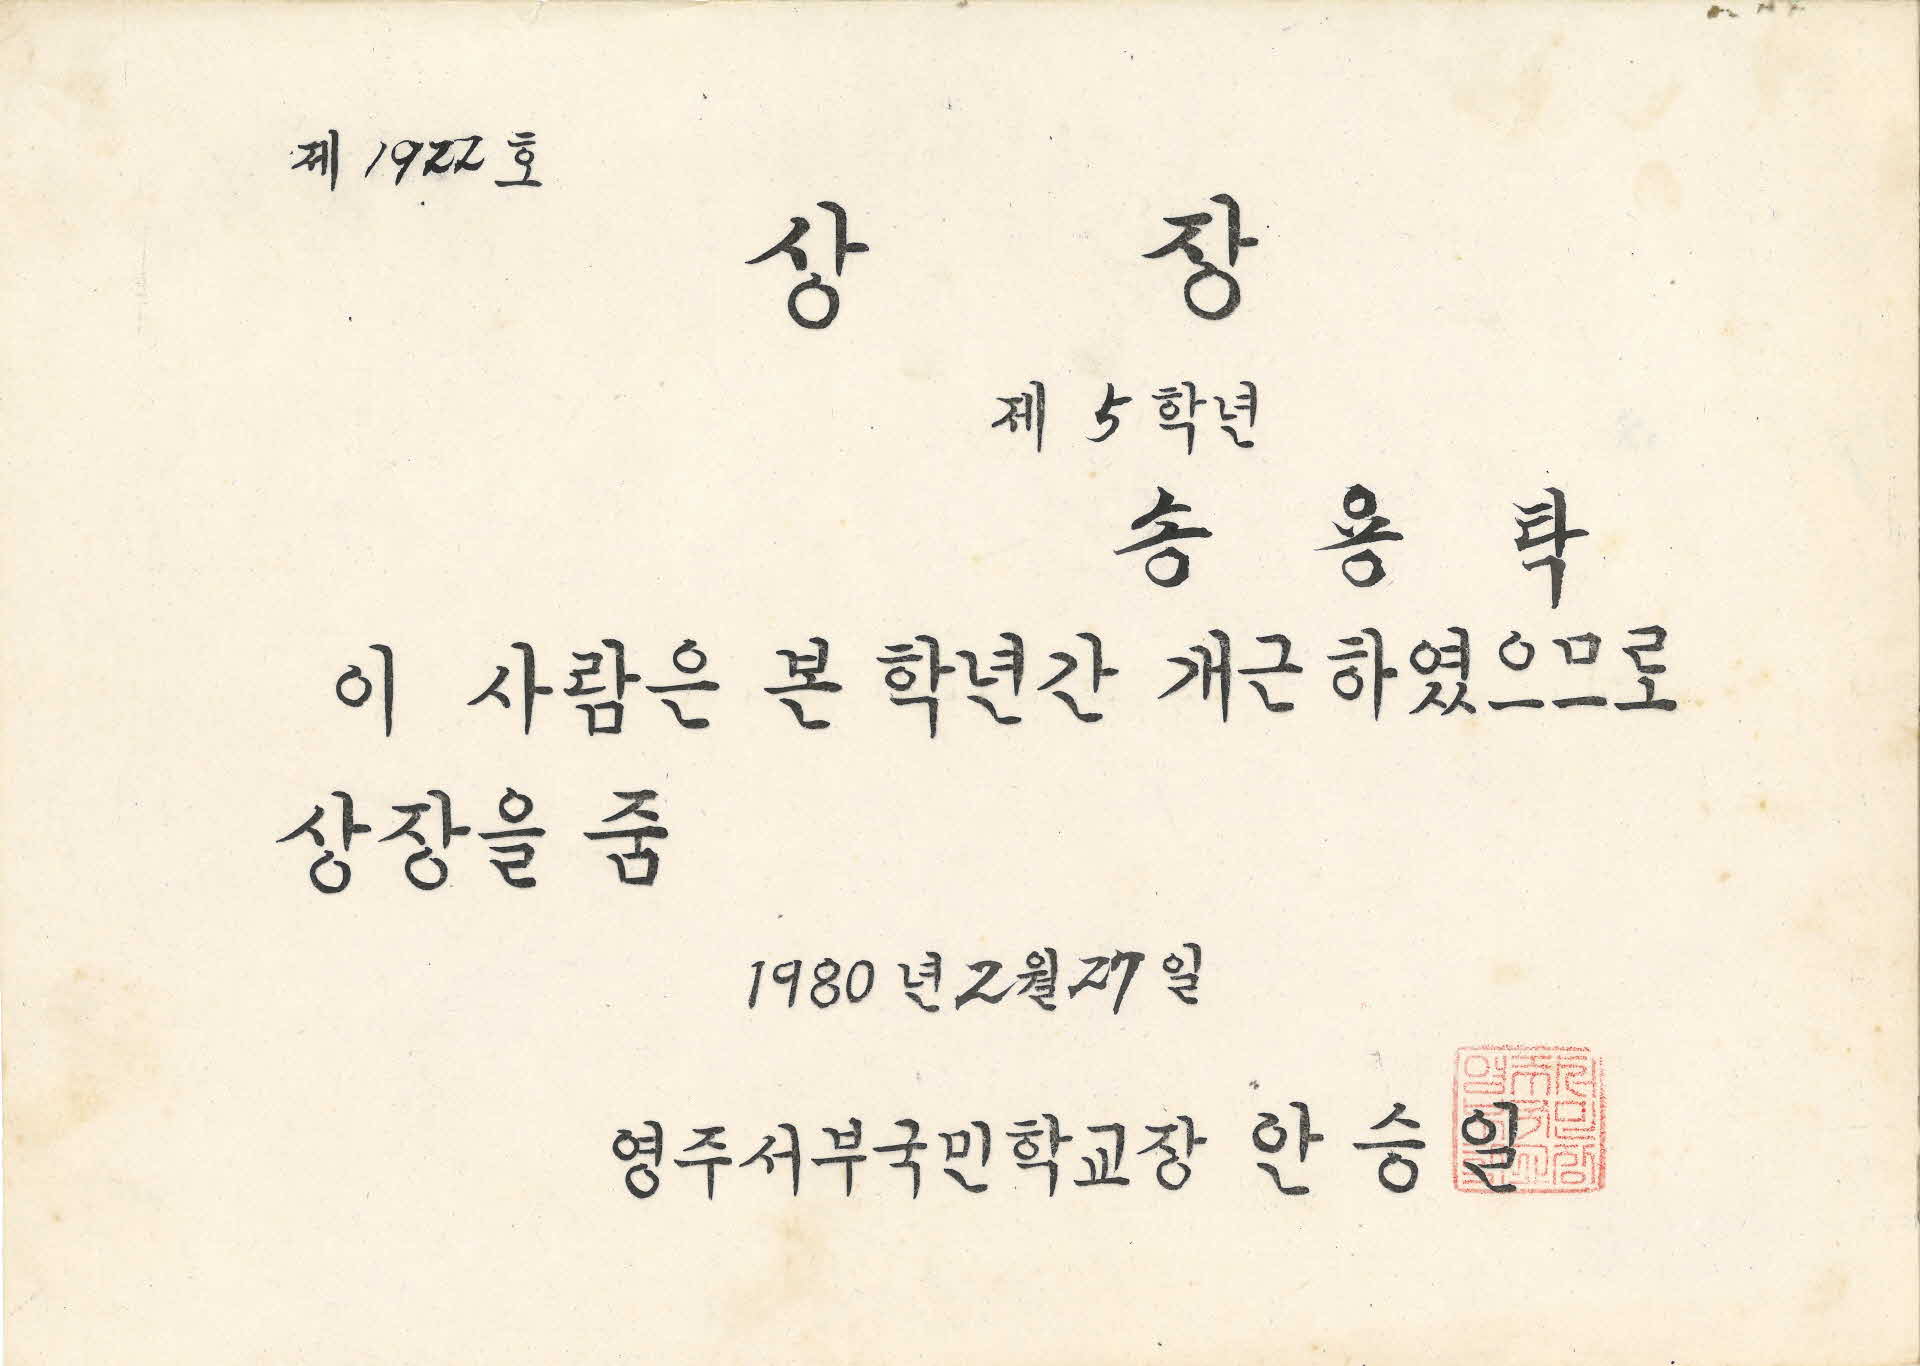 제 1922 호
상 장
제 5 학년
송 용 탁
이 사람은 본 학년간 개근하였으므로
상장을 줌
1980 년 2월 27 일
영주서부국민학교장 안 승 일